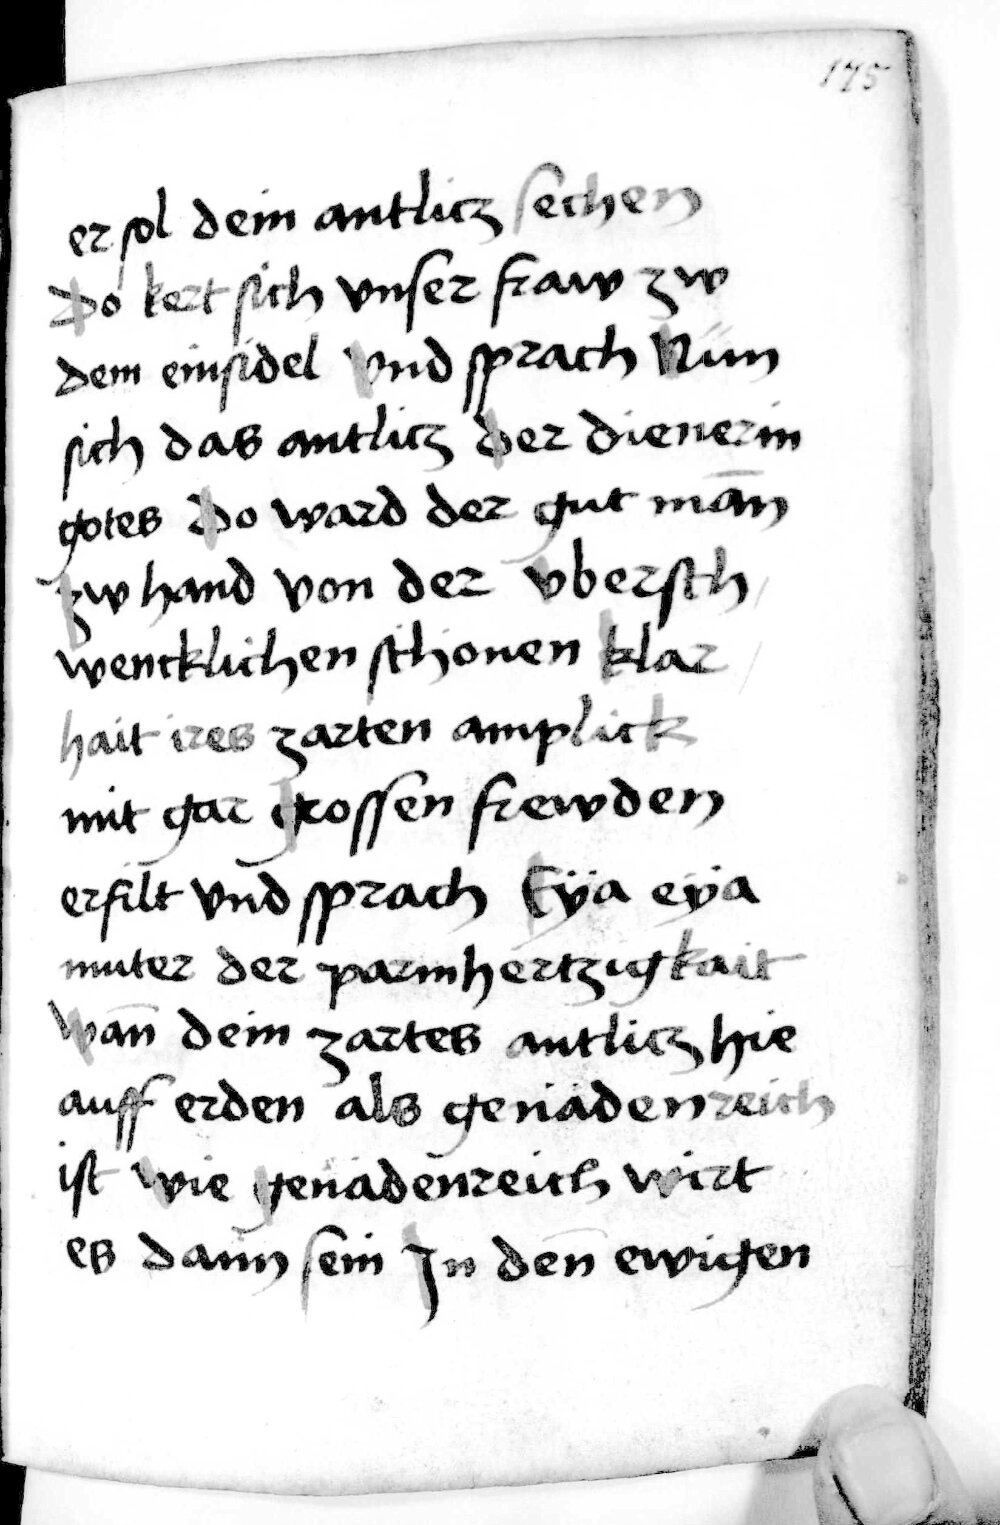 175
er sol dein antlicz sechen
Do kert sich vnser fraw zw
dem einsidel Vnd sprach Nün
sich das antlicz der dienerin
gotes Do ward der gut man̄
zw hand von der vbersch
wencklichen schonen klar
hait ires zarten amplick
mit gar grossen frewden
erfilt vnd sprach Eÿa eÿa
muter der parmhertzigkait
Wan̄ dein zartes antlicz hie
auff erden als genadenreich
ist wie genadenreich wirt
es dann sein In den̄ ewigen